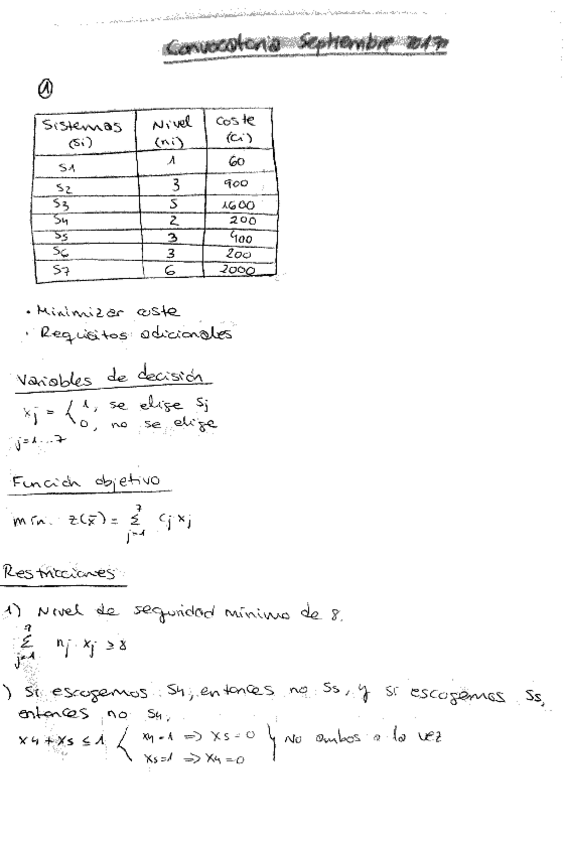 Convocatoria Septiembre 2017
①
Sistemas (Si) Nivel (ni) Coste (Ci)
S1 1 60
S2 3 900
S3 5 1600
S4 2 200
S5 3 400
S6 3 200
S7 6 2000
· Minimizar coste
· Requisitos adicionales
Variables de decisión
xj = { 1, se elige Sj
0, no se elige
j=1...7
Función objetivo
mín. z(x̄) = Σ_{j=1}^{7} cj xj
Restricciones
1) Nivel de seguridad mínimo de 8.
Σ_{j=1}^{7} nj · xj ≥ 8
) Si escogemos S4, entonces no S5, y si escogemos S5,
entonces no S4.
x4 + x5 ≤ 1 { x4=1 => x5=0 } No ambos a la vez
x5=1 => x4=0